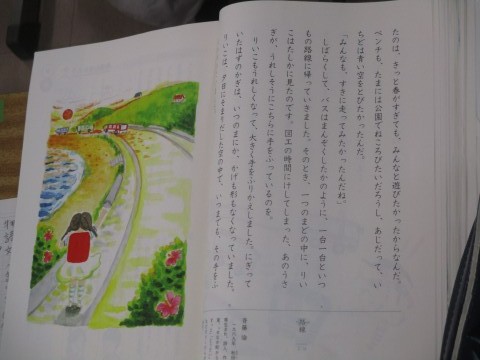 たのは、きっと春がすぎても、みんなと遊びたかったからなんだ。
ベンチも、たまには公園でねころびたいだろうし、あじだって、い
ちどは青い空をとびたかったんだ。
「みんなも、すきに走ってみたかったんだね。」
しばらくして、バスはまんぞくしたかのように、一台一台といつ
もの路線に帰っていきました。そのとき、一つのまどの中に、りい
こはたしかに見たのです。図工の時間にけしてしまった、あのうさ
ぎが、うれしそうにこちらに手をふっているのを。
りいこもうれしくなって、大きく手をふりかえしました。にぎって
いたはずのかぎは、いつのまにか、かげも形もなくなっていました。
りいこは、夕日にそまりだした空の中で、いつまでも、その手をふ
路線
斉藤 倫